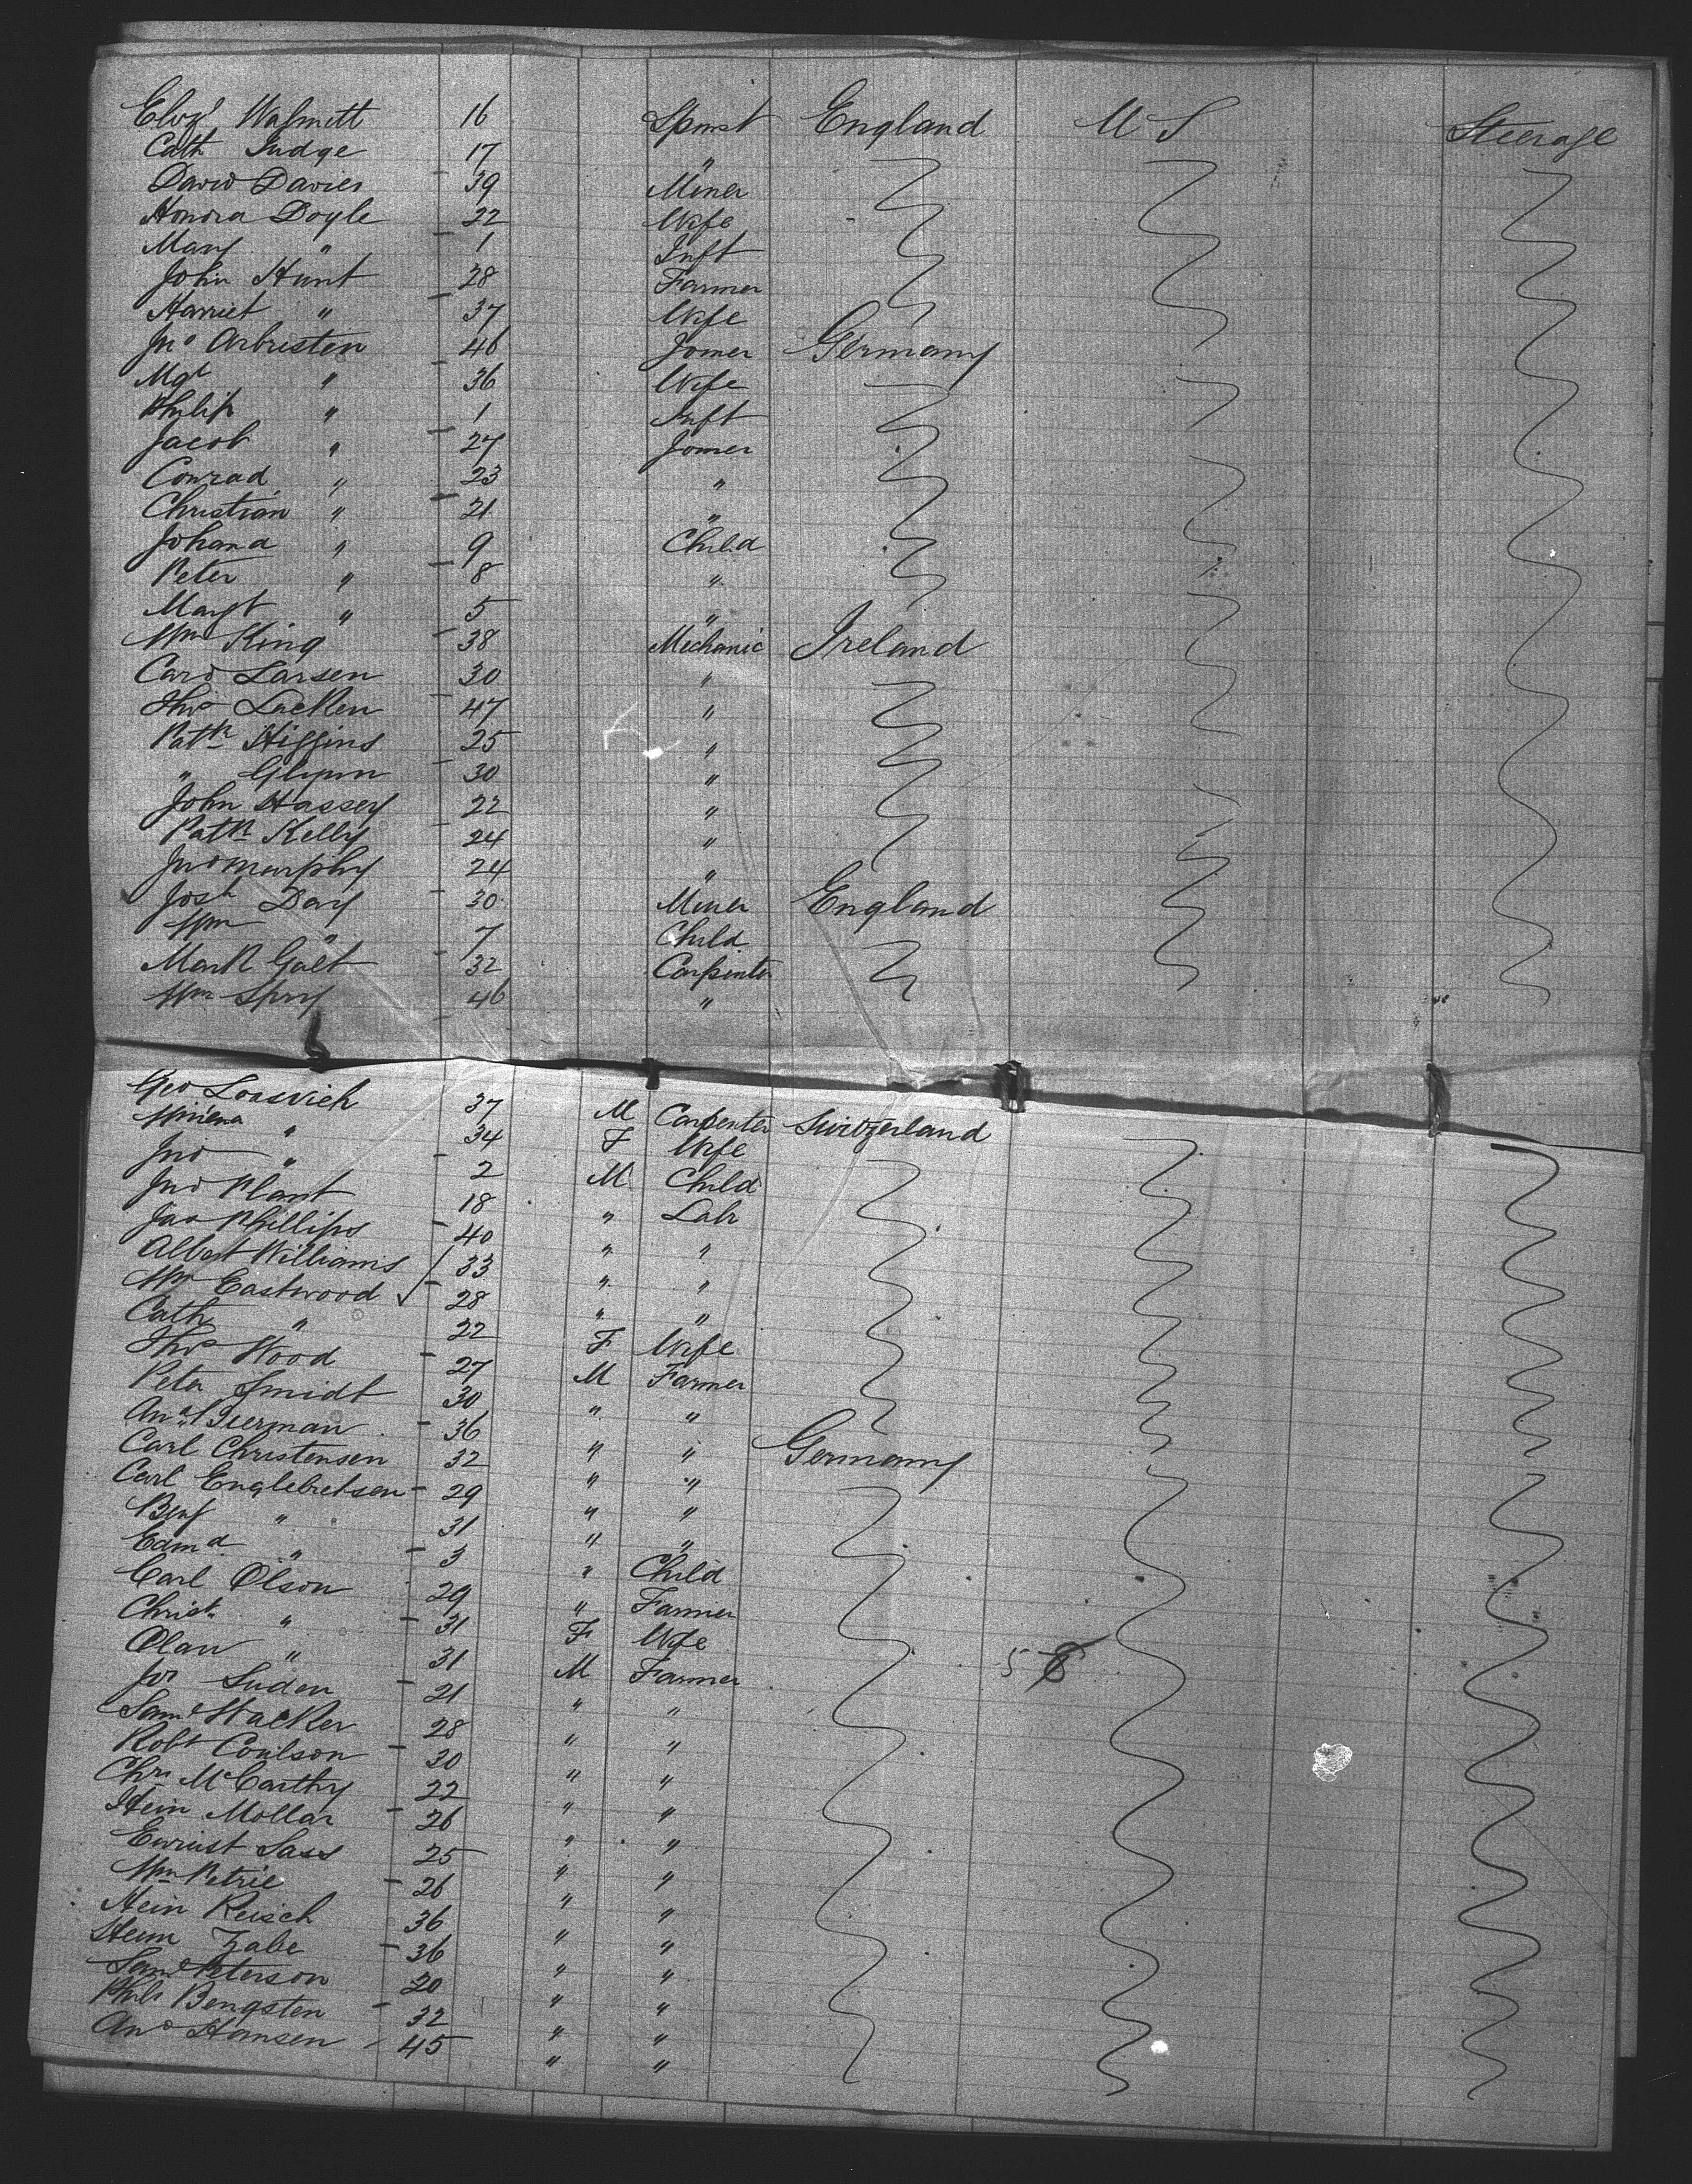 Eliz Walmitt 16 Spinst England U S Steerage
Cath Judge 17 "
David Davies 39 Miner
Honora Doyle 22 Wife
Mary " 1 Inft
John Hunt 28 Farmer
Harriet " 37 Wife
Jno Arbristen 46 Joiner Germany
Mgt " 36 Wife
Philip " 1 Inft
Jacob " 27 Joiner
Conrad " 23 "
Christian " 21 "
Johana " 9 Child
Peter " 8 "
Margt " 5 "
Wm King 38 Mechanic Ireland
Card Larsen 30 "
Thos Lacken 47 "
Patk Higgins 25 "
" Glynn 30 "
John Hassey 22 "
Patk Kelly 24 "
Jno Murphy 24 "
Josh Davy 30 Miner England
Wm " 7 Child
Mark Galt 32 Carpinter
Wm Spry 46 "
Geo Loasvich 37 M Carpenter Switzerland
" 34 F Wife
Jno " 2 M Child
Jno Plant 18 " Labr
Jas Phillips 40 " "
Albert Williams 33 " "
Wm Eastwood 28 " "
Cath " 22 F Wife
Thos Wood 27 M Farmer
Peter Smidt 30 " "
36 " " Germany
Carl Christensen 32 " "
Carl Englebretsen 29 " "
Benj " 31 " "
Edmd " 3 " Child
Carl Olson 29 " Farmer
Christ " 31 F Wife
Olaw " 31 M Farmer 5 8
Jos Suden 21 " "
Saml Hacker 28 " "
Robt Coulson 30 " "
Chrs McCarthy 22 " "
Hein Mollar 26 " "
Ewrust Sass 25 " "
Wm Petrie 26 " "
Hein Reisch 36 " "
Hein Zabe 36 " "
Saml Peterson 20 " "
Phili Bengsten 32 " "
And Hansen 45 " "